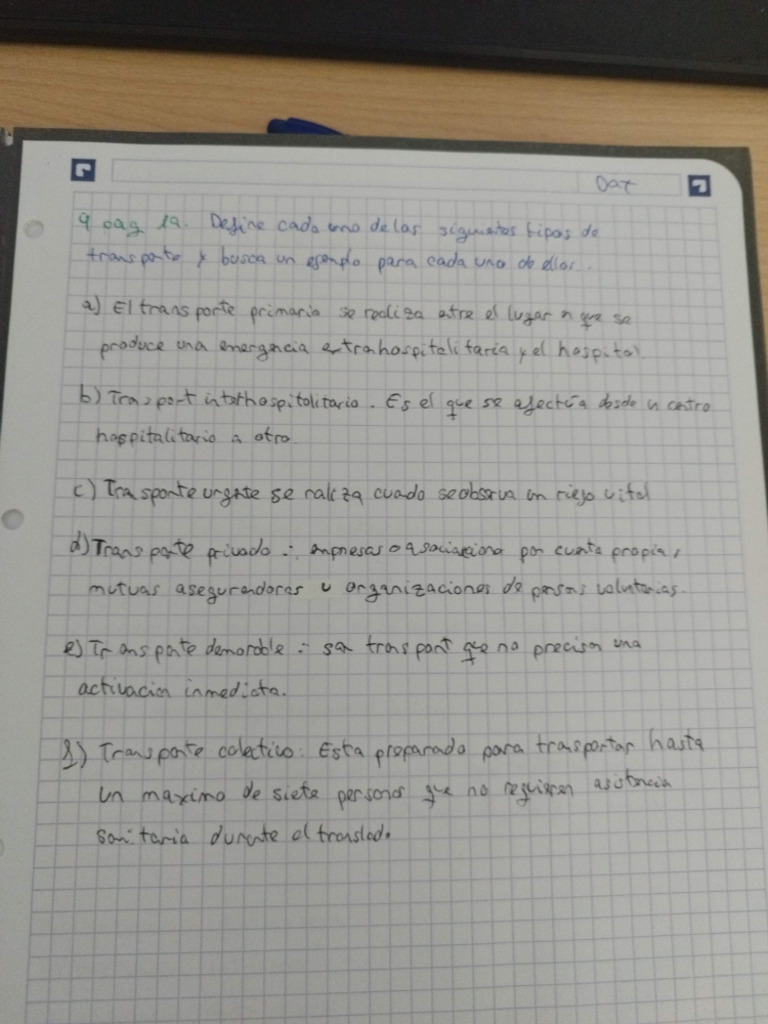 Dat
9 pag 19. Define cada uno de las siguientes tipos de
transporte y busca un ejemplo para cada uno de ellos.
a) El transporte primario se realiza entre el lugar n que se
produce una emergencia extrahospitalitaria y el hospital
b) Transport interhospitolitario. Es el que se afectúa desde un centro
hospitalitario a otro.
c) Trasporte urgnte se raliza cuado se obsrva un riego vital
d) Transporte privado : empresas o asociaciono por cuenta propia,
mutuas aseguradoras u organizaciones de personas voluntarias.
e) Transporte demorable : son transport que no precisan una
activacion inmediata.
f) Transporte colectivo: Esta preparado para transportar hasta
un maximo de siete personas que no requieren asistencia
sanitaria durante el translado.